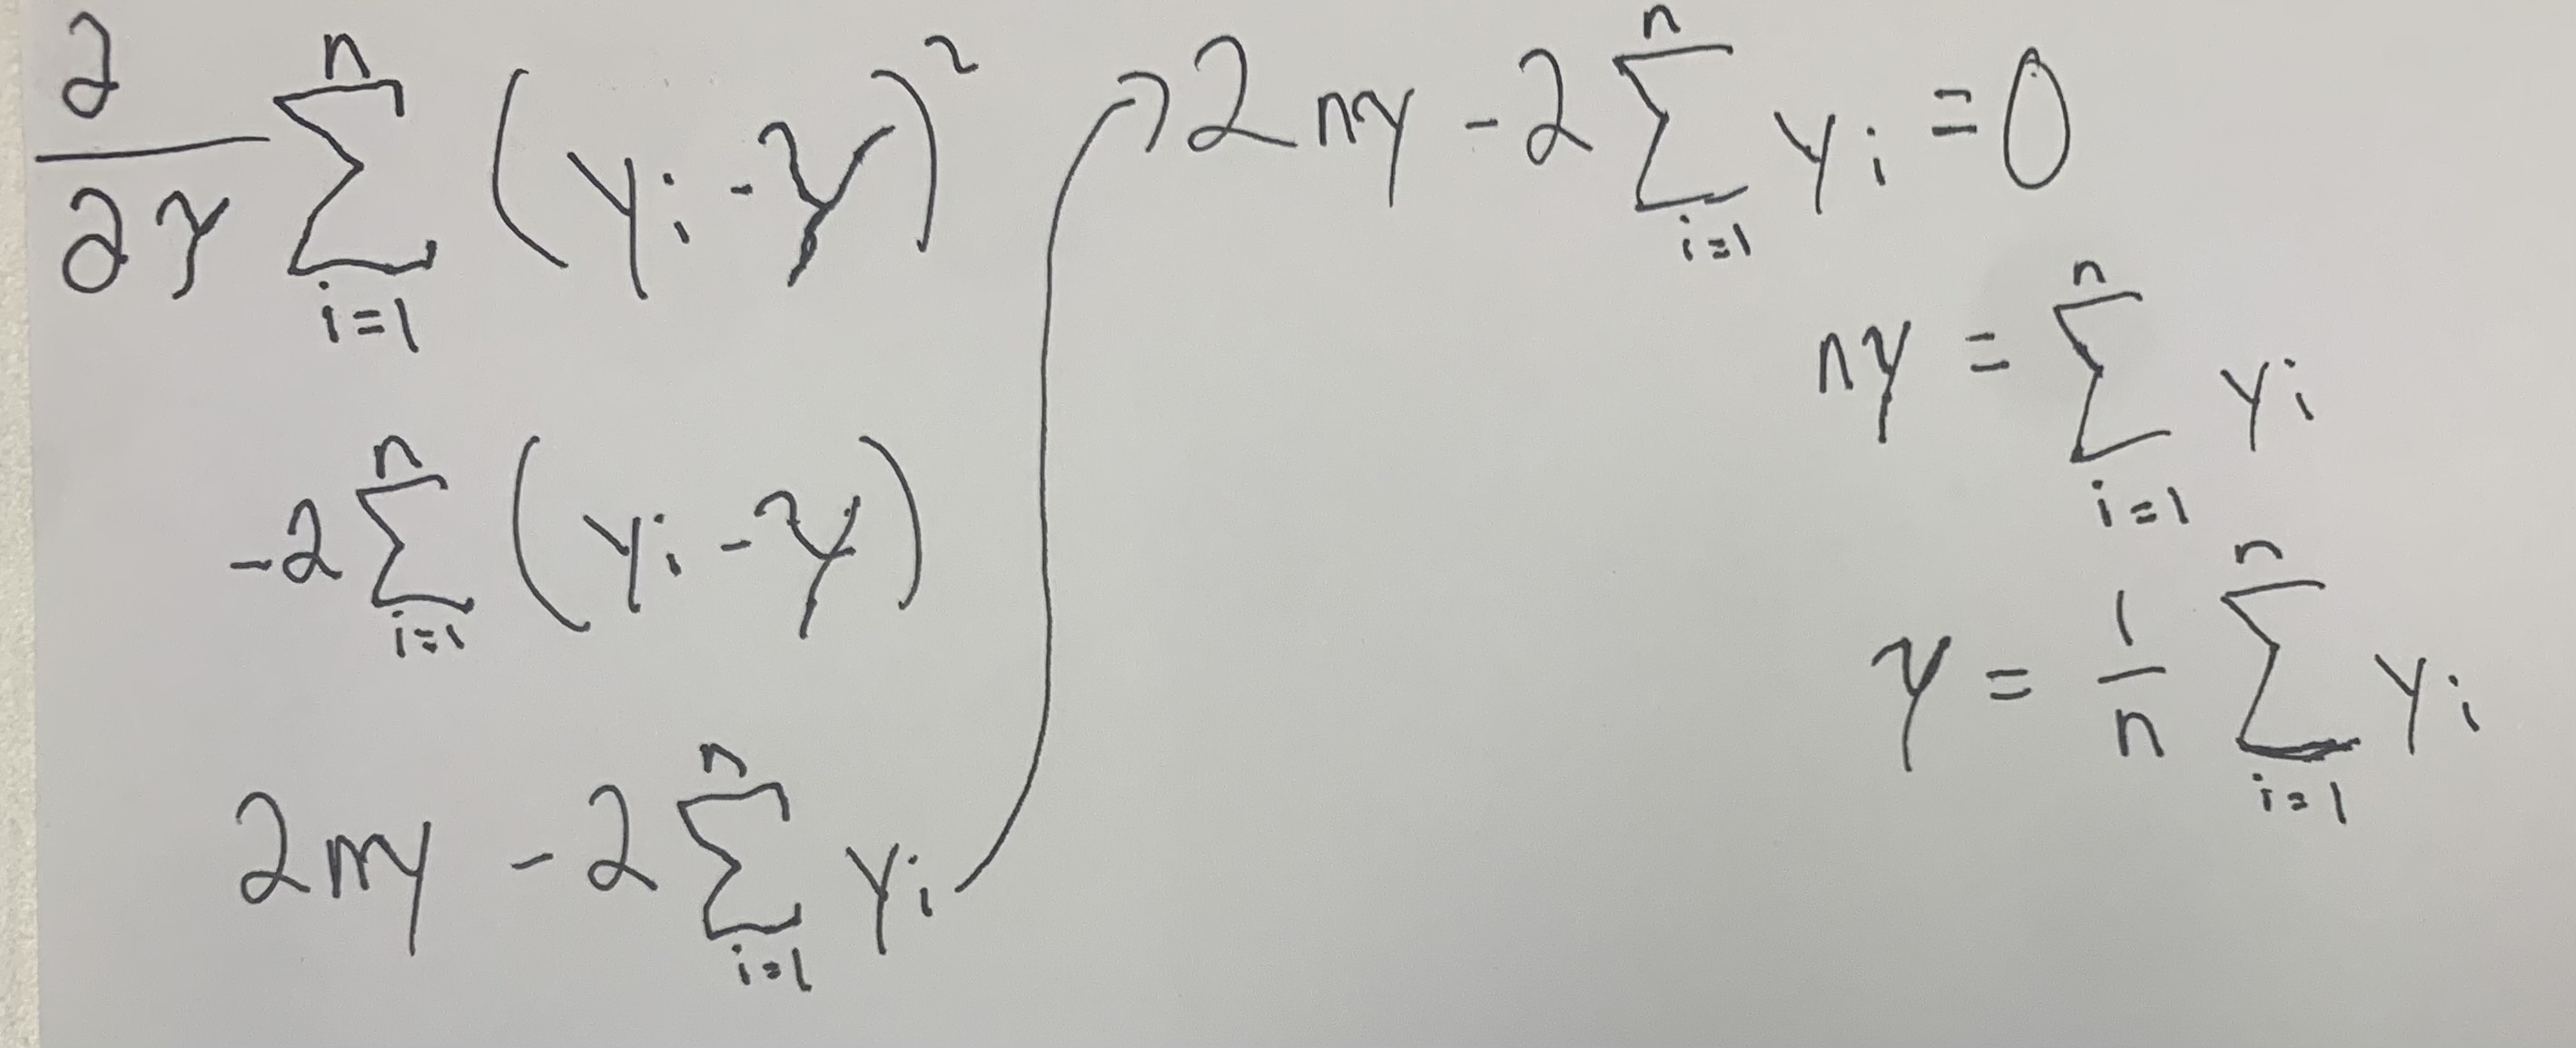 ∂/∂γ ∑_{i=1}^{n} (y_i - γ)^2
-2 ∑_{i=1}^{n} (y_i - γ)
2nγ - 2 ∑_{i=1}^{n} y_i
2nγ - 2 ∑_{i=1}^{n} y_i = 0
nγ = ∑_{i=1}^{n} y_i
γ = 1/n ∑_{i=1}^{n} y_i